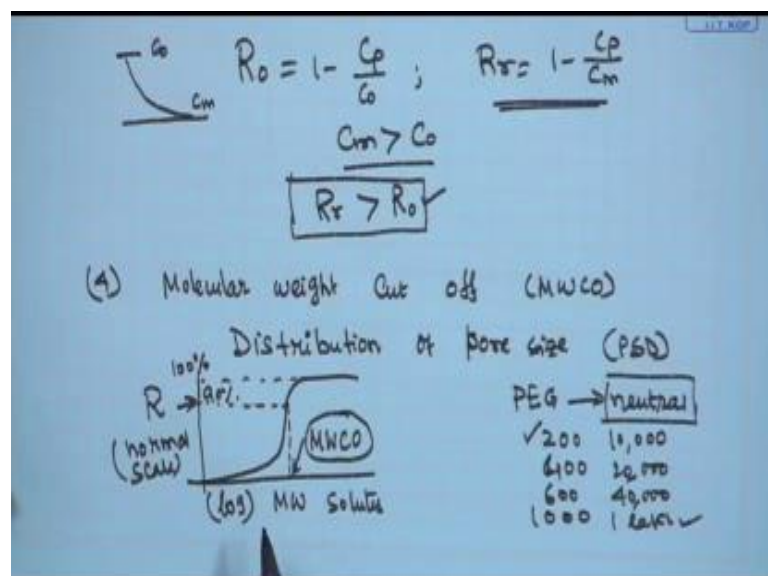 I.I.T. KGP
C₀ R₀ = 1 - Cp/C₀ ; Rr = 1 - Cp/Cm
Cm
Cm > C₀
Rr > R₀ ✓
(4) Molecular weight Cut off (MWCO)
Distribution of pore size (PSD)
100%
R → 90%
(normal scale)
MWCO
(log) MW Solutes
PEG → neutral
✓200 10,000
400 20,000
600 40,000
1000 1 lakh ✓